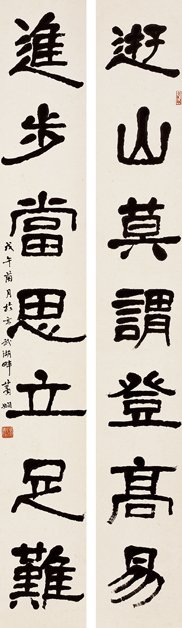 遊山莫謂登高易
進步當思立足難
戊午菊月於玄武湖畔 蕭嫻